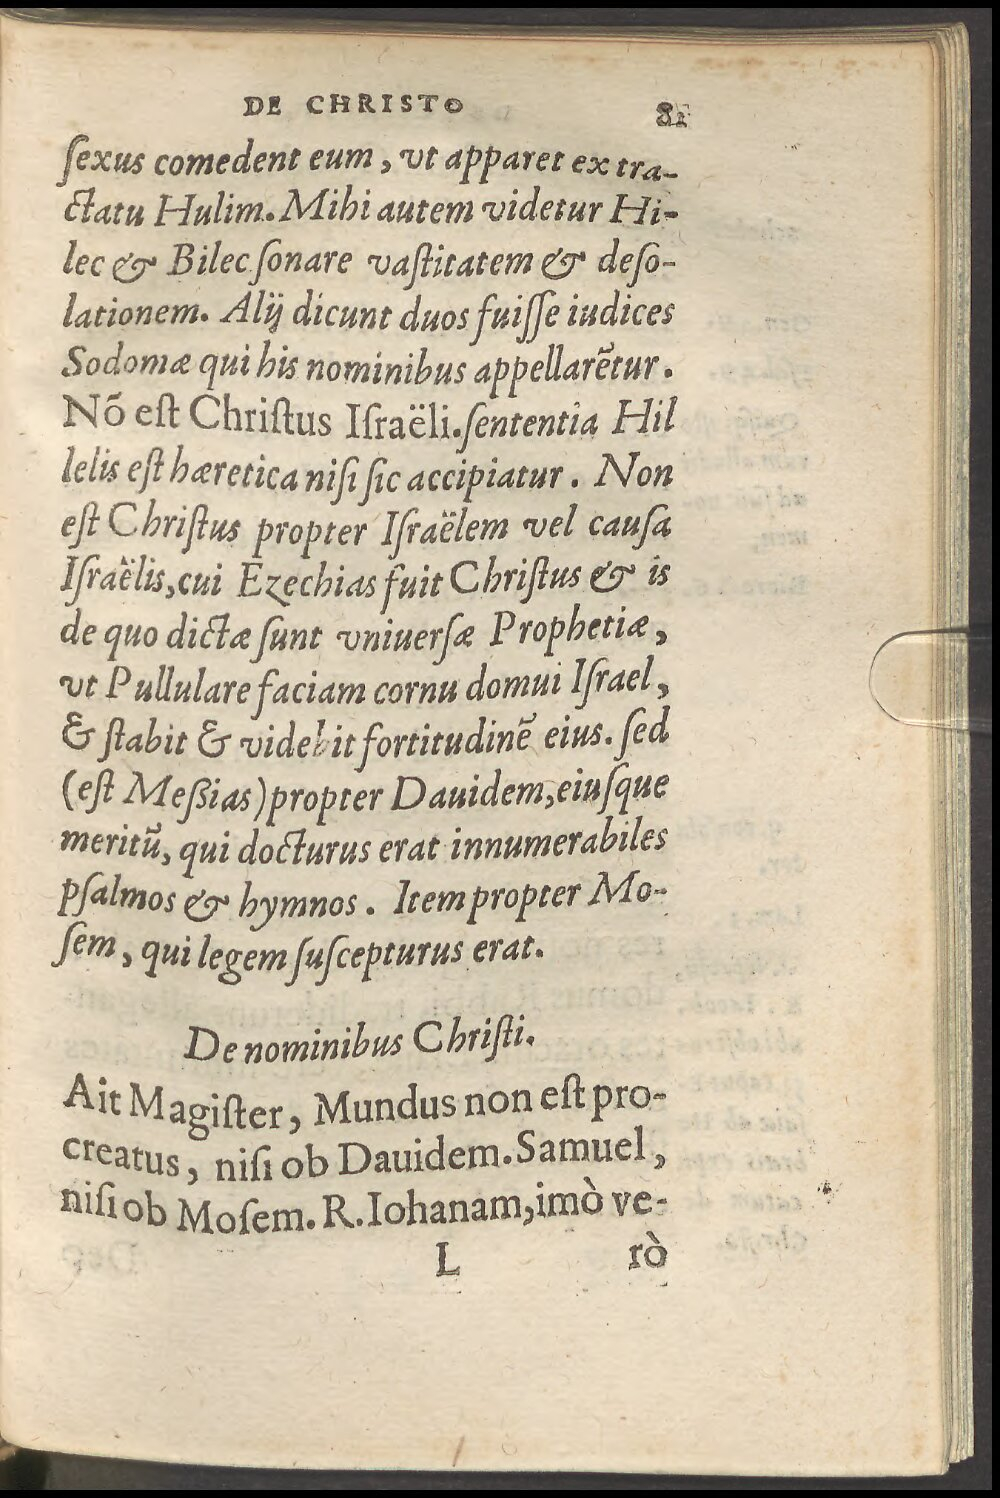 DE CHRISTO 81
ſexus comedent eum, vt apparet ex tra-
ctatu Hulim. Mihi autem videtur Hi-
lec & Bilec ſonare vaſtitatem & deſo-
lationem. Alij dicunt duos fuiſſe iudices
Sodomæ qui his nominibus appellarētur.
Nō eſt Chriſtus Iſraëli. ſententia Hil
lelis eſt hæretica niſi ſic accipiatur. Non
eſt Chriſtus propter Iſraëlem vel cauſa
Iſraëlis, cui Ezechias fuit Chriſtus & is
de quo dictæ ſunt vniuerſæ Prophetiæ,
vt Pullulare faciam cornu domui Iſrael,
& ſtabit & videbit fortitudinē eius. ſed
(eſt Meßias) propter Dauidem, eiuſque
meritū, qui docturus erat innumerabiles
pſalmos & hymnos. Item propter Mo-
ſem, qui legem ſuſcepturus erat.
De nominibus Chriſti.
Ait Magiſter, Mundus non eſt pro-
creatus, niſi ob Dauidem. Samuel,
niſi ob Moſem. R. Iohanam, imò ve-
L rò